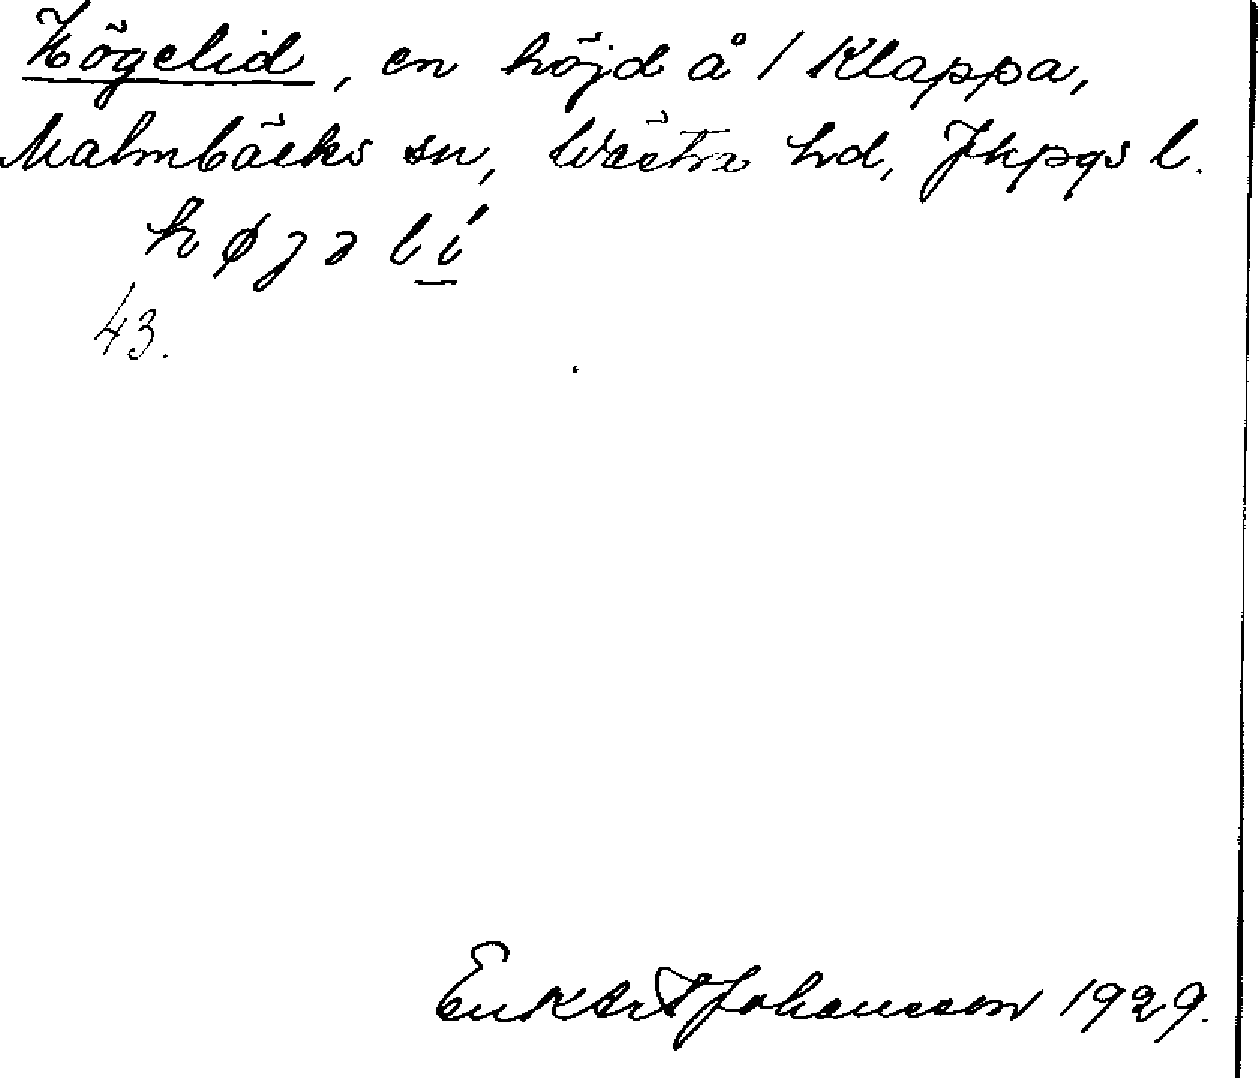 Högelid, en höjd å / Klappa,
Malmbäcks sn, Västra hd, Jkpgs l.
høȷəlí
43.
Johansson 1929.